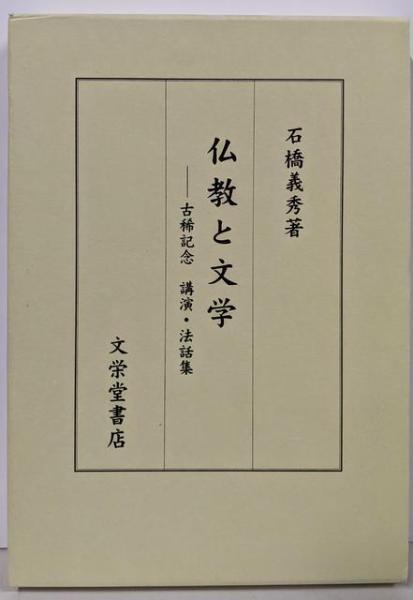 石橋義秀著
仏教と文学
──古稀記念 講演・法話集
文栄堂書店